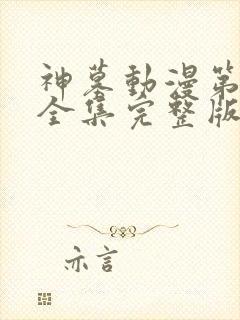 神墓動漫第
全集完整版
亦言